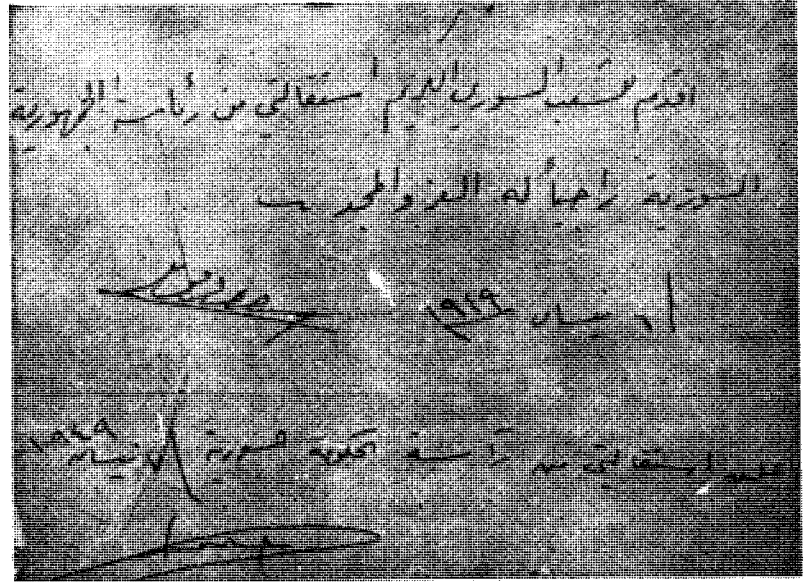 اقدم للشعب السوري الكريم استقالتي من رئاسة الجمهورية
السورية راجياً له العز والمجد
٦ نيسان ١٩٤٩
استقالتي من رئاسة الحكومة السورية ٦ نيسان ١٩٤٩